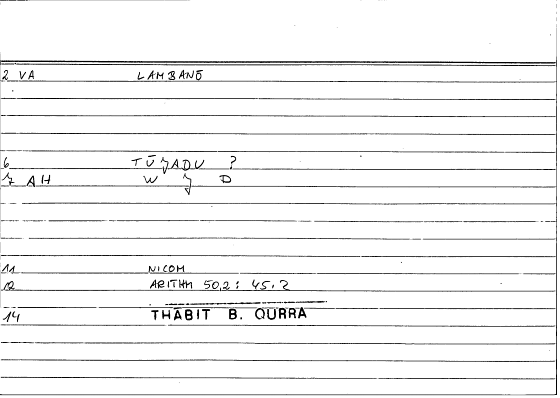 2 VA LAMBANŌ
6 TŪJADU ?
7 AH W J D
11 NICOM
12 ARITHM 50,2 : 45.2
14 THABIT B. QURRA